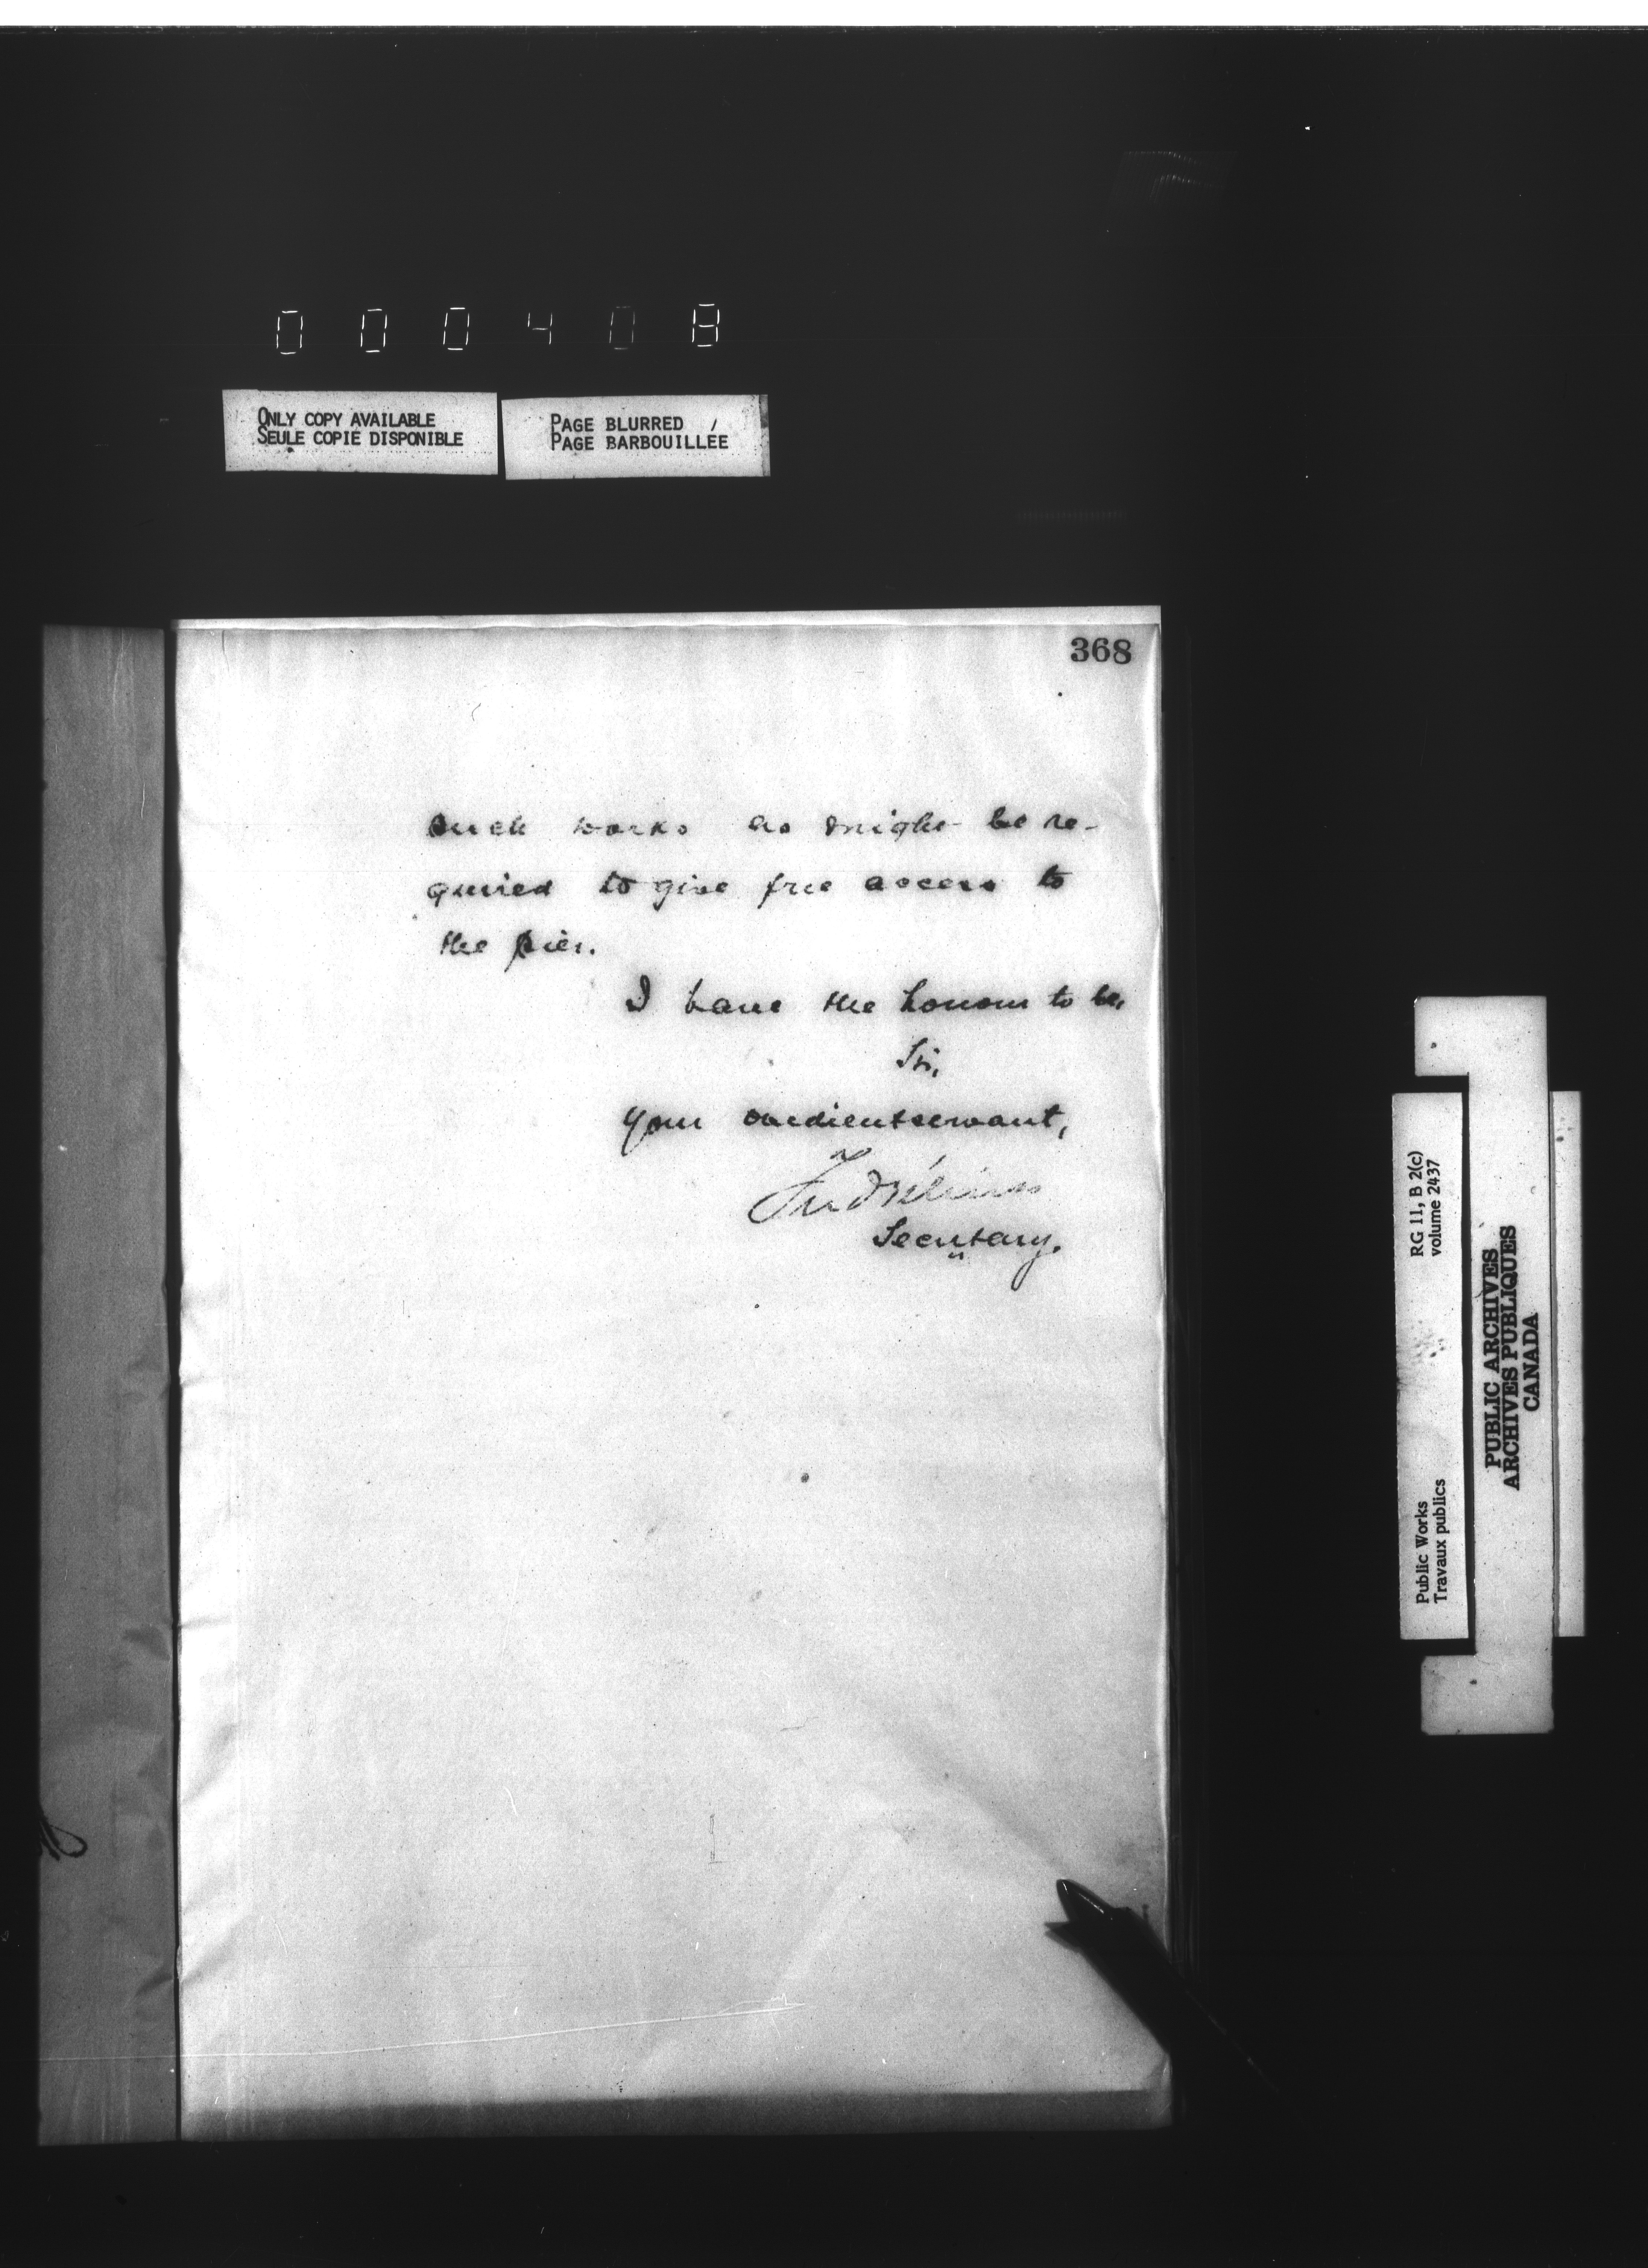 000408
ONLY COPY AVAILABLE
SEULE COPIE DISPONIBLE
PAGE BLURRED
PAGE BARBOUILLÉE
368
such works as might be re-
quired to give free access to
the pier.
I have the honour to be,
Sir,
your obedient servant,
Secretary.
RG 11, B 2(c)
volume 2437
Public Works
Travaux publics
PUBLIC ARCHIVES
ARCHIVES PUBLIQUES
CANADA